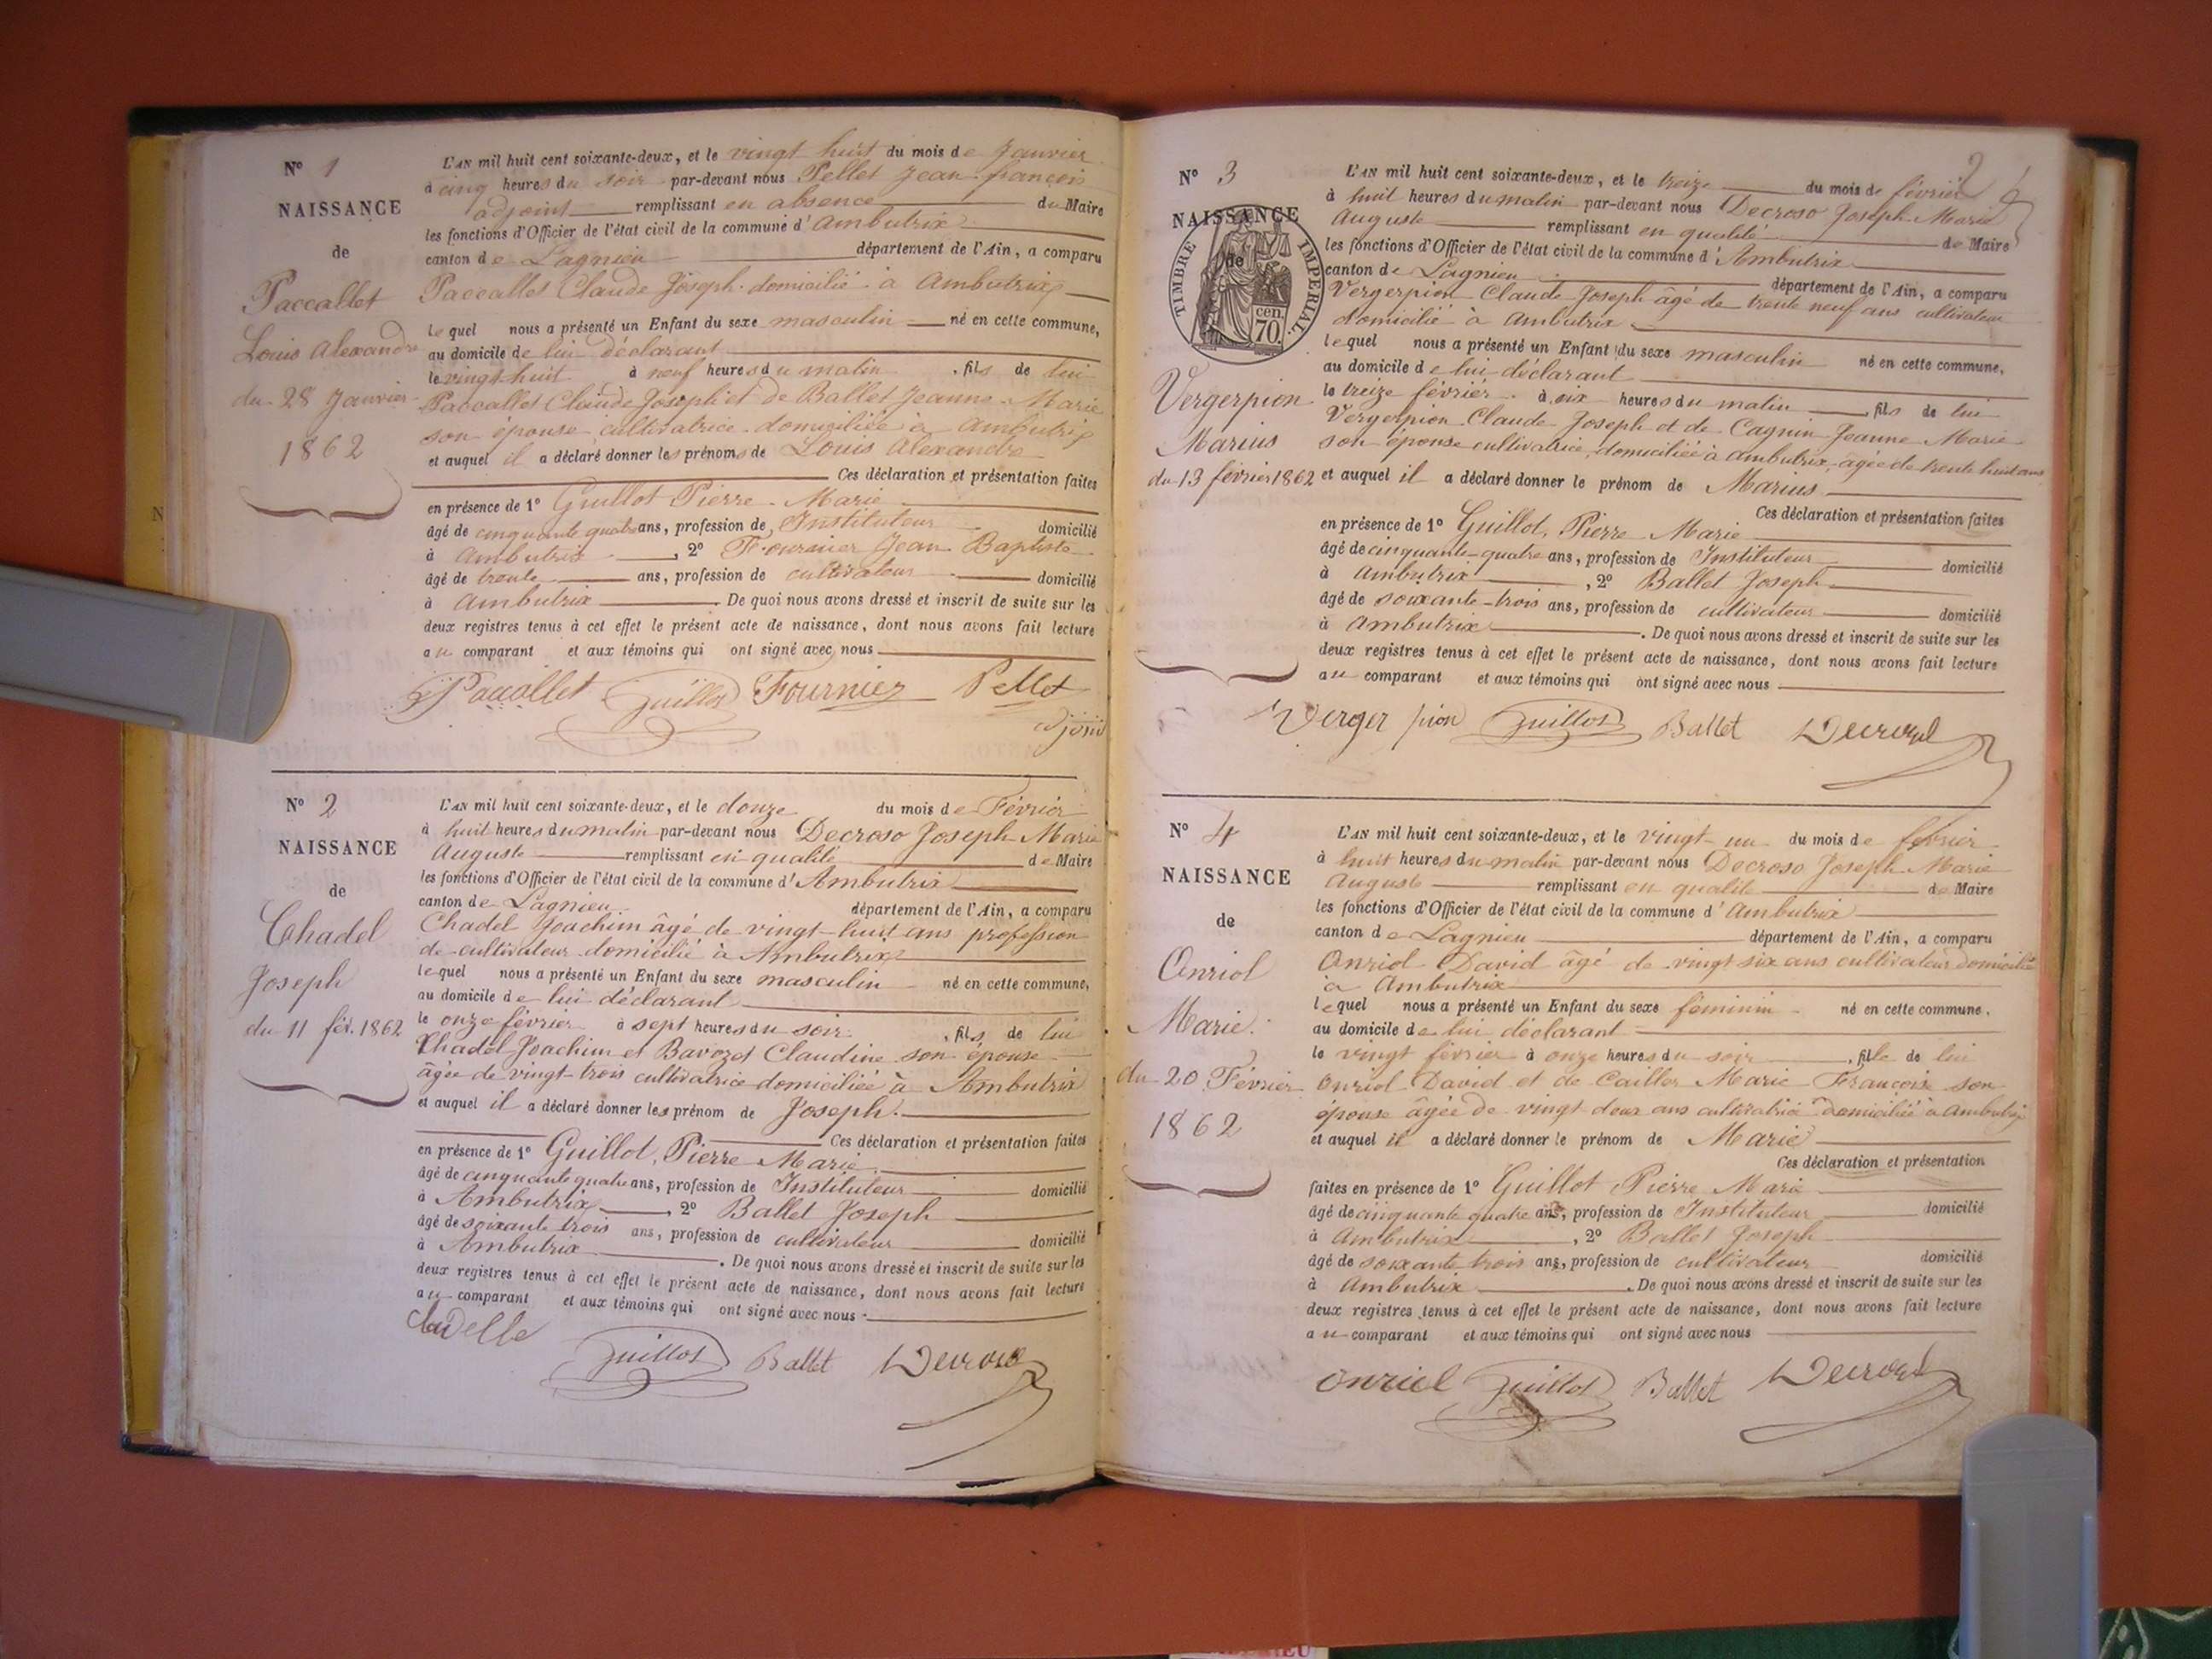 N° 1
NAISSANCE
de
Paccallet
Louis Alexandre
du 28 Janvier
1862
L'AN mil huit cent soixante-deux, et le vingt huit du mois de Janvier
à cinq heures du soir par-devant nous Pellet Jean françois
adjoint remplissant en absence du Maire
les fonctions d'Officier de l'état civil de la commune d'Ambutrix
canton de Lagnieu département de l'Ain, a comparu
Paccallet Claude Joseph domicilié à Ambutrix
lequel nous a présenté un Enfant du sexe masculin né en cette commune,
au domicile de lui déclarant
le vingt huit à neuf heures du matin, fils de lui
Paccallet Claude Joseph et de Ballet Jeanne Marie
son épouse cultivatrice domiciliée à Ambutrix
et auquel il a déclaré donner les prénoms de Louis Alexandre
Ces déclaration et présentation faites
en présence de 1° Guillot Pierre Marie
âgé de cinquante quatre ans, profession de Instituteur domicilié
à Ambutrix, 2° Fournier Jean Baptiste
âgé de trente ans, profession de cultivateur domicilié
à Ambutrix. De quoi nous avons dressé et inscrit de suite sur les
deux registres tenus à cet effet le présent acte de naissance, dont nous avons fait lecture
au comparant et aux témoins qui ont signé avec nous
Paccallet Guillot Fournier Pellet
adjoint
N° 2
NAISSANCE
de
Chadel
Joseph
du 11 fév. 1862
L'AN mil huit cent soixante-deux, et le douze du mois de Février
à huit heures du matin par-devant nous Decroso Joseph Marie
Auguste remplissant en qualité de Maire
les fonctions d'Officier de l'état civil de la commune d'Ambutrix
canton de Lagnieu département de l'Ain, a comparu
Chadel Joachim âgé de vingt-huit ans profession
de cultivateur domicilié à Ambutrix
lequel nous a présenté un Enfant du sexe masculin né en cette commune,
au domicile de lui déclarant
le onze février à sept heures du soir, fils de lui
Chadel Joachim et Bavozet Claudine son épouse
âgée de vingt-trois cultivatrice domiciliée à Ambutrix
et auquel il a déclaré donner les prénom de Joseph.
Ces déclaration et présentation faites
en présence de 1° Guillot, Pierre Marie
âgé de cinquante quatre ans, profession de Instituteur domicilié
à Ambutrix, 2° Ballet Joseph
âgé de soixante trois ans, profession de cultivateur domicilié
à Ambutrix. De quoi nous avons dressé et inscrit de suite sur les
deux registres tenus à cet effet le présent acte de naissance, dont nous avons fait lecture
au comparant et aux témoins qui ont signé avec nous
Chadelle
Guillot Ballet Decroso
2
N° 3
NAISSANCE
de
TIMBRE IMPÉRIAL
70 cen.
Vergerpion
Marius
du 13 février 1862
L'AN mil huit cent soixante-deux, et le treize du mois de février
à huit heures du matin par-devant nous Decroso Joseph Marie
Auguste remplissant en qualité de Maire
les fonctions d'Officier de l'état civil de la commune d'Ambutrix
canton de Lagnieu département de l'Ain, a comparu
Vergerpion Claude Joseph âgé de trente neuf ans cultivateur
domicilié à Ambutrix
lequel nous a présenté un Enfant du sexe masculin né en cette commune,
au domicile de lui déclarant
le treize février à six heures du matin, fils de lui
Vergerpion Claude Joseph et de Cagnin Jeanne Marie
son épouse cultivatrice, domiciliée à Ambutrix, âgée de trente huit ans
et auquel il a déclaré donner le prénom de Marius
Ces déclaration et présentation faites
en présence de 1° Guillot, Pierre Marie
âgé de cinquante-quatre ans, profession de Instituteur domicilié
à Ambutrix, 2° Ballet Joseph
âgé de soixante-trois ans, profession de cultivateur domicilié
à Ambutrix. De quoi nous avons dressé et inscrit de suite sur les
deux registres tenus à cet effet le présent acte de naissance, dont nous avons fait lecture
au comparant et aux témoins qui ont signé avec nous
Vergerpion Guillot Ballet Decroso
N° 4
NAISSANCE
de
Onriol
Marie.
du 20 Février
1862
L'AN mil huit cent soixante-deux, et le vingt-un du mois de février
à huit heures du matin par-devant nous Decroso Joseph Marie
Auguste remplissant en qualité de Maire
les fonctions d'Officier de l'état civil de la commune d'Ambutrix
canton de Lagnieu département de l'Ain, a comparu
Onriol David âgé de vingt six ans cultivateur domicilié
à Ambutrix
lequel nous a présenté un Enfant du sexe féminin né en cette commune.
au domicile de lui déclarant
le vingt février à onze heures du soir, fille de lui
Onriol David et de Cailler Marie Françoise son
épouse âgée de vingt-deux ans cultivatrice domiciliée à Ambutrix
et auquel il a déclaré donner le prénom de Marie
Ces déclaration et présentation
faites en présence de 1° Guillot Pierre Marie
âgé de cinquante quatre ans, profession de Instituteur domicilié
à Ambutrix, 2° Ballet Joseph
âgé de soixante-trois ans, profession de cultivateur domicilié
à Ambutrix. De quoi nous avons dressé et inscrit de suite sur les
deux registres tenus à cet effet le présent acte de naissance, dont nous avons fait lecture
au comparant et aux témoins qui ont signé avec nous
Onriol Guillot Ballet Decroso